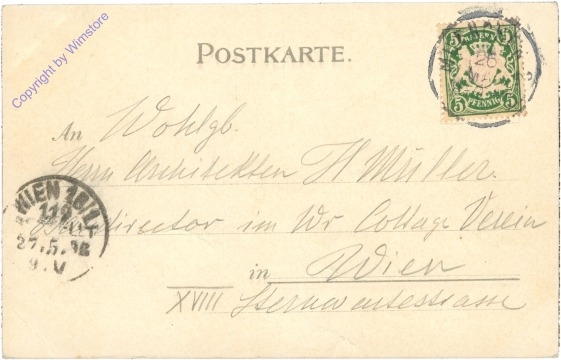 Copyright by Wimstore
POSTKARTE.
BAYERN
5 5
5 PFENNIG 5
26
MAI
An Wohlgb.
Herrn Architekten H Müller.
director im Wr Cottage Verein
in Wien
XVIII Sternwartestrasse
WIEN 18/1
27.5.
9.V